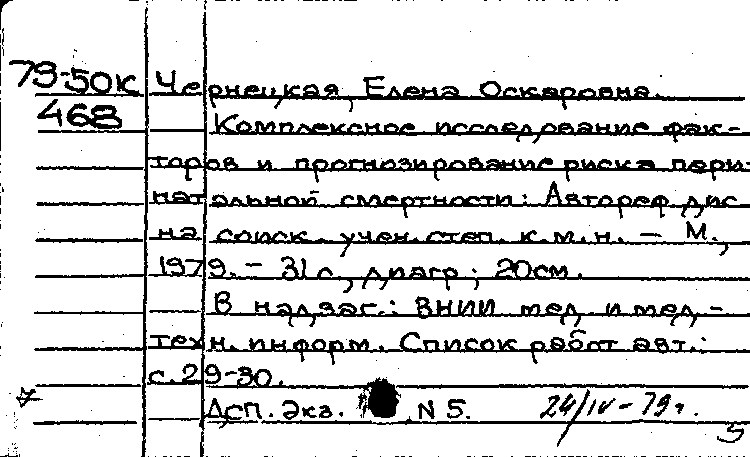 79-50к Чернецкая, Елена Оскаровна.
468 Комплексное исследование фак-
торов и прогнозирование риска пери-
натальной смертности: Автореф дис
на соиск. учен. степ. к.м.н. – М.,
1979. – 31 с., диагр; 20см.
В надзаг.: ВНИИ мед. и мед.-
техн. информ. Список работ авт.:
с. 29-30.
ДСП. Экз. N 5. 24/IV-79г.